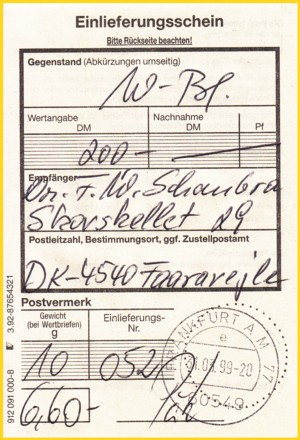 Einlieferungsschein
Bitte Rückseite beachten!
Gegenstand (Abkürzungen umseitig)
W-Bf.
Wertangabe
DM
Nachnahme
DM
Pf
200.-
Empfänger
Dr. F. W. Schaubra
Skarskellet 29
Postleitzahl, Bestimmungsort, ggf. Zustellpostamt
DK-4540 Faarevejle
Postvermerk
Gewicht
(bei Wertbriefen)
g
Einlieferungs-
Nr.
10
052
6,60-
FRANKFURT A M 77
e
.99-20
60549
912 091 000-8
3.92-87654321